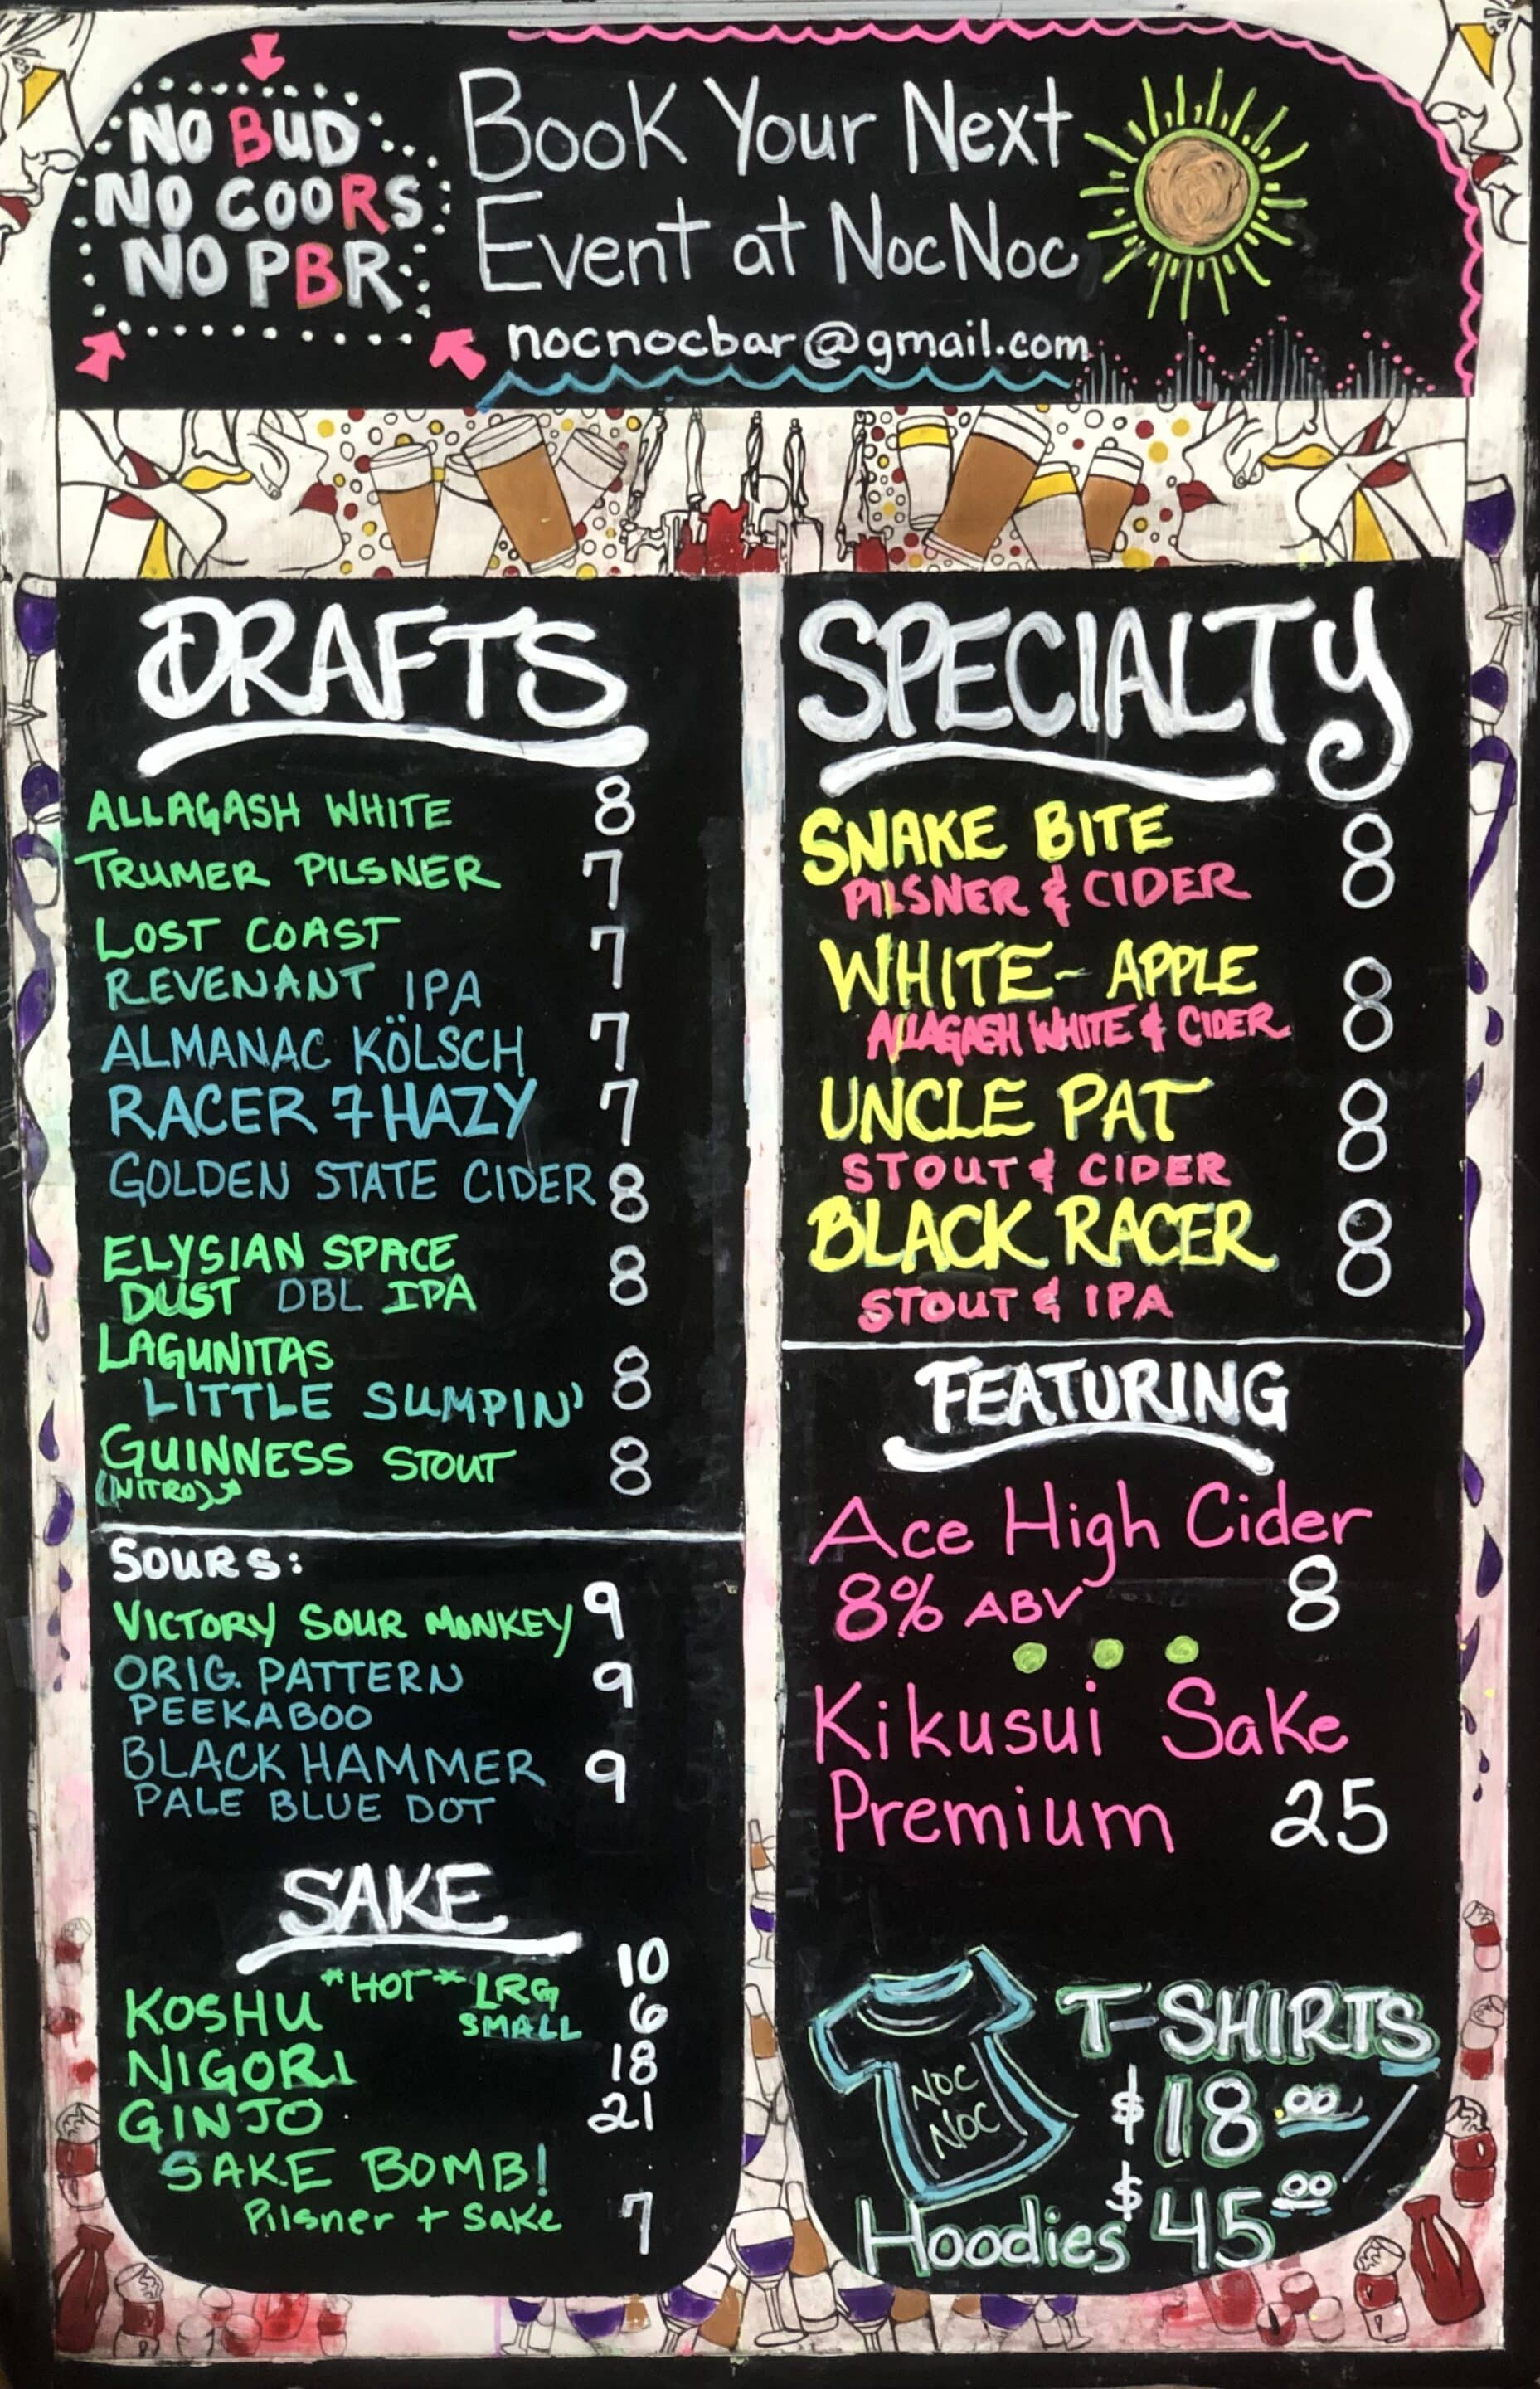 NO BUD
NO COORS
NO PBR
Book Your Next
Event at NocNoc
nocnocbar@gmail.com
DRAFTS
ALLAGASH WHITE 8
TRUMER PILSNER 7
LOST COAST
REVENANT IPA 7
ALMANAC KÖLSCH 7
RACER 7 HAZY 7
GOLDEN STATE CIDER 8
ELYSIAN SPACE
DUST DBL IPA 8
LAGUNITAS
LITTLE SUMPIN' 8
GUINNESS STOUT 8
(NITRO)
SOURS:
VICTORY SOUR MONKEY 9
ORIG. PATTERN 9
PEEKABOO
BLACK HAMMER 9
PALE BLUE DOT
SAKE
KOSHU *HOT* LRG 10
SMALL 6
NIGORI 18
GINJO 21
SAKE BOMB!
Pilsner + Sake 7
SPECIALTY
SNAKE BITE 8
PILSNER & CIDER
WHITE-APPLE 8
ALLAGASH WHITE & CIDER
UNCLE PAT 8
STOUT & CIDER
BLACK RACER 8
STOUT & IPA
FEATURING
Ace High Cider
8% ABV 8
Kikusui Sake
Premium 25
T-SHIRTS
$18.00/
Hoodies $45.00
NOC
NOC